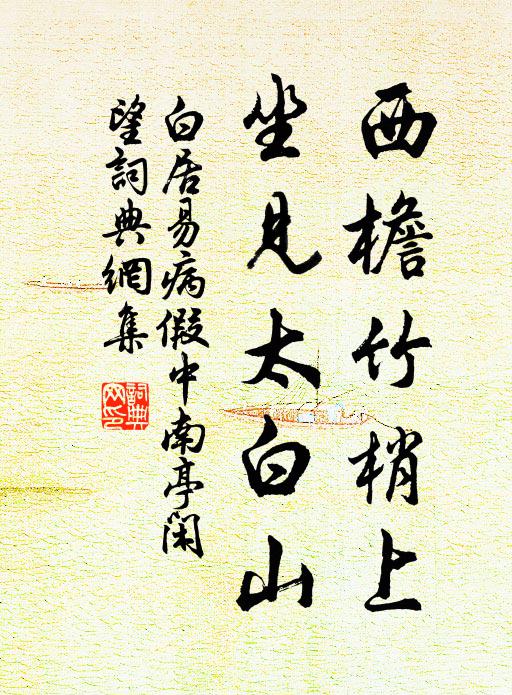 西檐竹梢上
坐見太白山
白居易病假中南亭閑
望詞典網集
詞典
网印